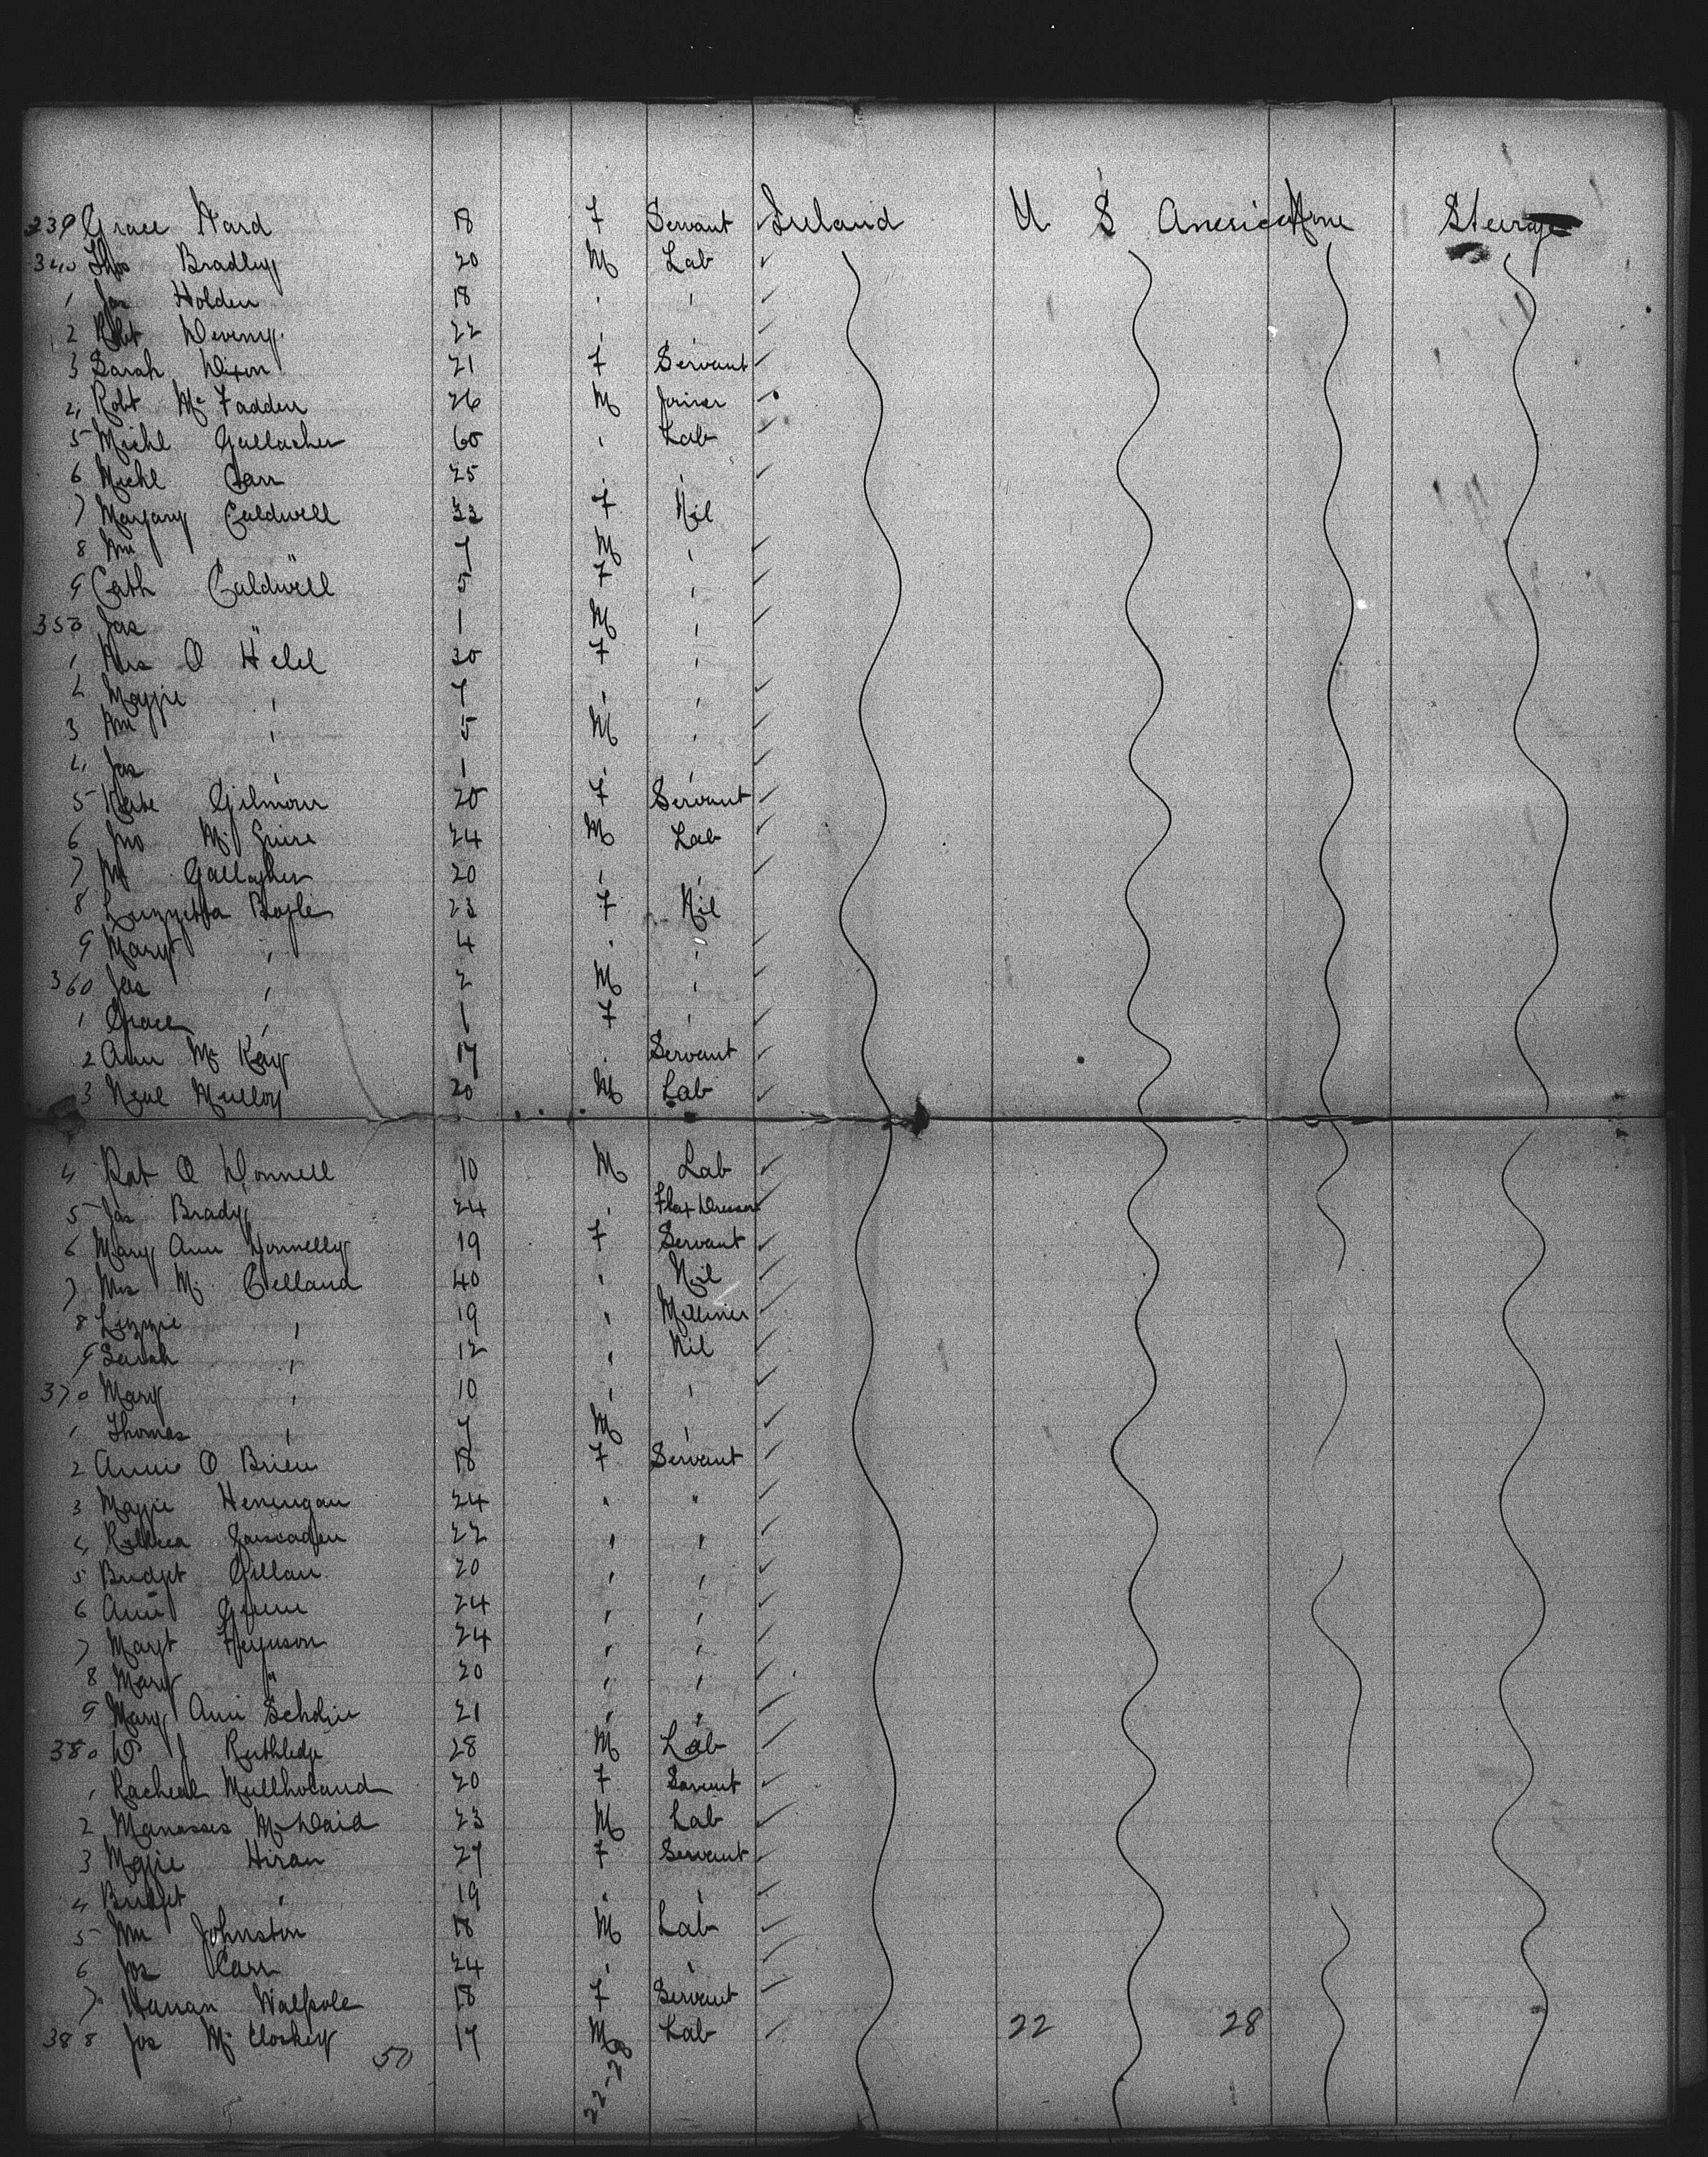 239 Grace Ward 18 F Servant Ireland U S America None Steerage
340 Thos Bradley 20 M Lab
1 Jas Holden 18 " "
2 Robt Deveny 22 " "
3 Sarah Dixon 21 F Servant
4 Robt Mc Fadden 26 M Joiner
5 Michl Gallacher 60 " Lab
6 Michl Carr 25 " "
7 Margary Caldwell 32 F Nil
8 Wm " 7 M "
9 Cath Caldwell 5 F "
350 Jas " 1 M "
1 Mrs O 30 F "
2 Maggie " 7 " "
3 Wm " 5 M "
4 Jas " 1 " "
5 Gilmour 20 F Servant
6 Jno Mc Guire 24 M Lab
7 Gallagher 20 " "
8 Boyle 23 F Nil
9 Margt " 4 " "
360 Jas " 2 M "
1 Grace " 1 F "
2 Ann Mc Kay 17 " Servant
3 Neal Mulloy 20 M Lab
4 Pat O Donnell 10 M Lab
5 Jas Brady 24 " Flax Dresser
6 Mary Ann Donnelly 19 F Servant
7 Mrs Mc Clelland 40 " Nil
8 Lizzie " 19 " Milliner
9 Sarah " 12 " Nil
370 Mary " 10 " "
1 Thomas " 7 M "
2 Annie O Brien 18 F Servant
3 Maggie Henengan 24 " "
4 Rebecca 22 " "
5 Bridget Gillan 20 " "
6 Ann 24 " "
7 Margt Ferguson 24 " "
8 Mary " 20 " "
9 Mary Ann 21 " "
380 W J Ruthledge 28 M Lab
1 Racheal Mullholand 20 F Servant
2 Manasses Mc Daid 23 M Lab
3 Maggie Hiran 27 F Servant
4 Bridget " 19 " "
5 Wm Johnston 18 M Lab
6 Jos Carr 24 " "
7 Hannan Walpole 18 F Servant
388 Jos Mc Closkey 17 M Lab 22 28
50
22-28